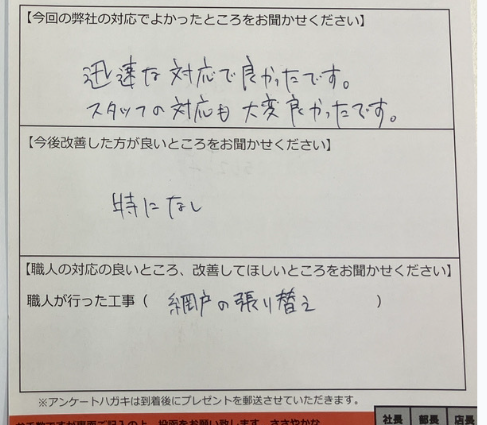 【今回の弊社の対応でよかったところをお聞かせください】
迅速な対応で良かったです。
スタッフの対応も大変良かったです。
【今後改善した方が良いところをお聞かせください】
特になし
【職人の対応の良いところ、改善してほしいところをお聞かせください】
職人が行った工事( 網戸の張り替え )
※アンケートハガキは到着後にプレゼントを郵送させていただきます。
社長 部長 店長